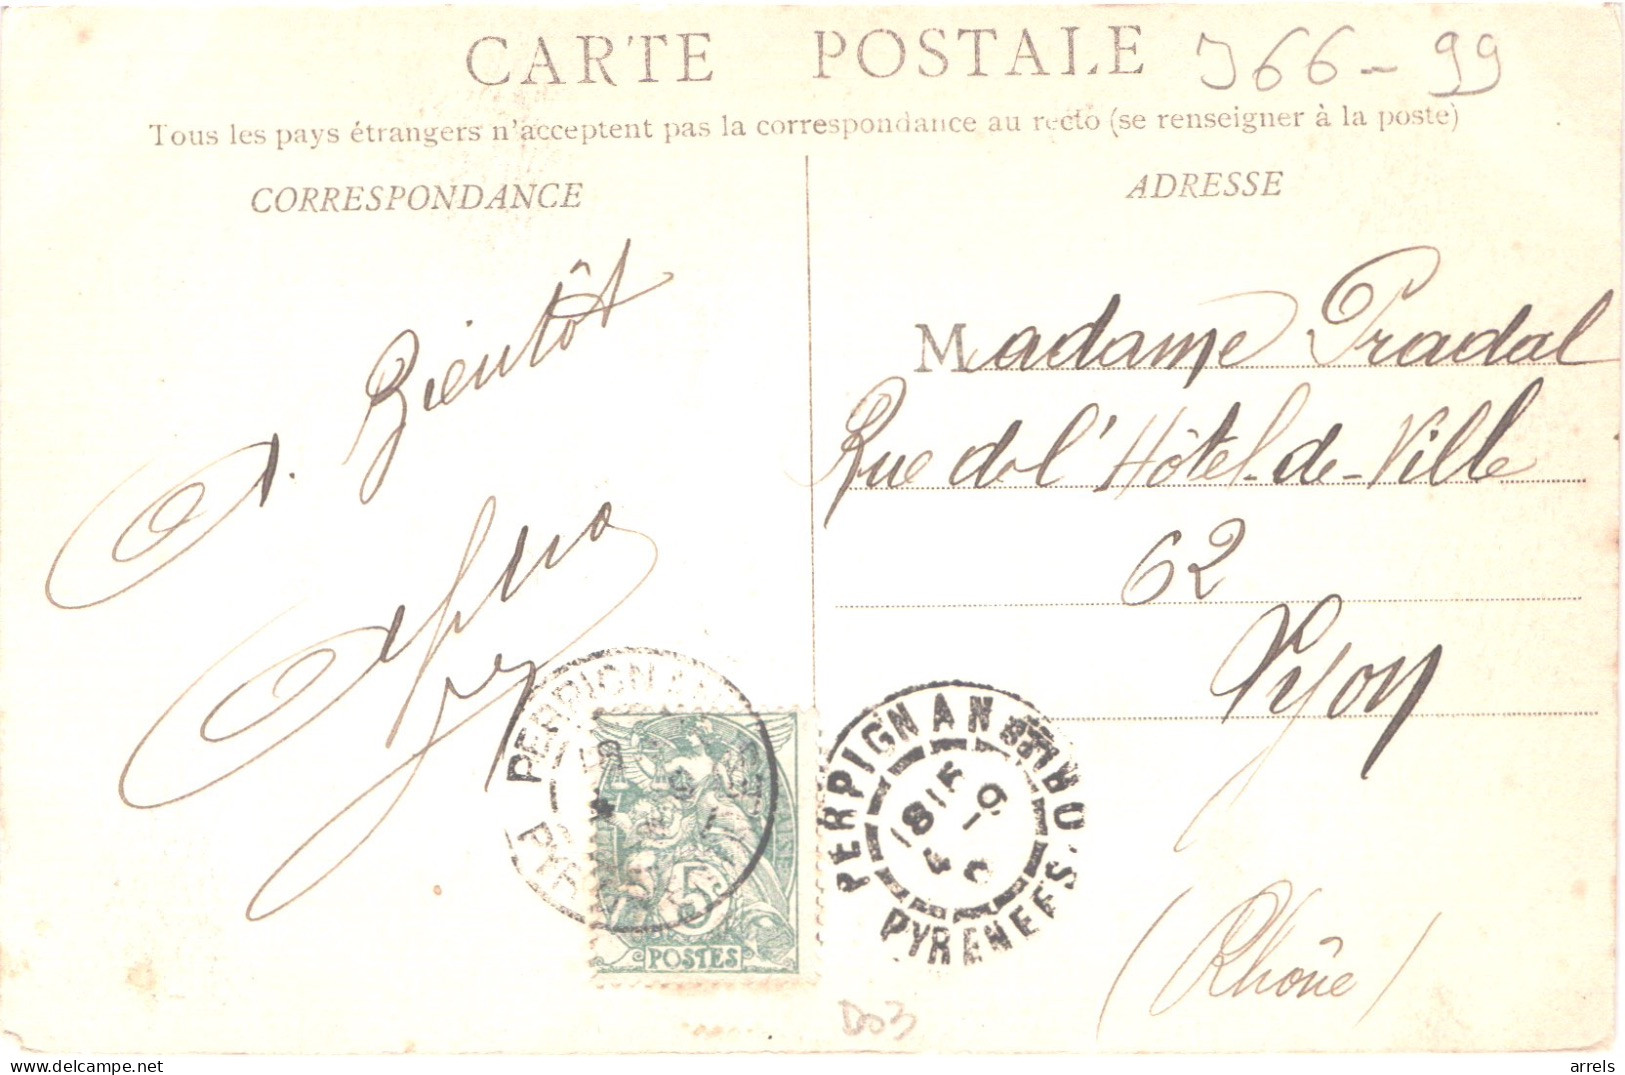 CARTE POSTALE
J66-99
Tous les pays étrangers n'acceptent pas la correspondance au recto (se renseigner à la poste)
CORRESPONDANCE
A. Bientôt
ADRESSE
Madame Pradal
Rue de l'Hôtel-de-Ville
62
Lyon
(Rhône)
PERPIGNAN
5
POSTES
PERPIGNAN
PYRENEES-OR
D03
arrels